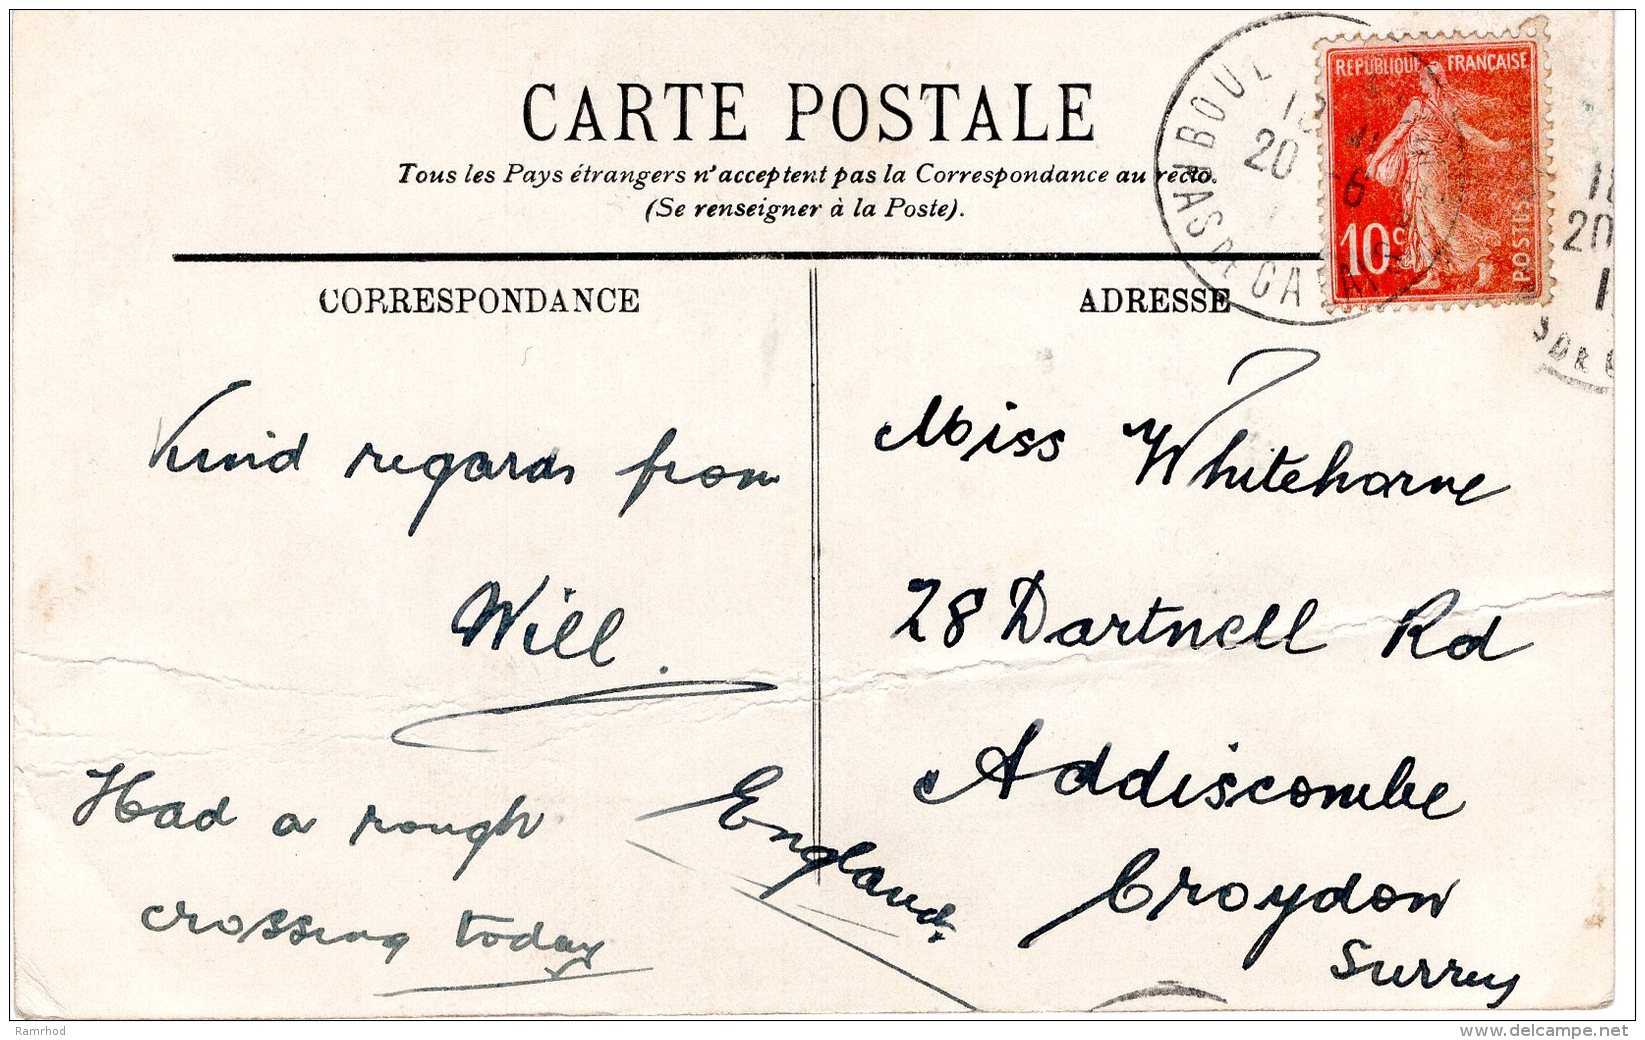 CARTE POSTALE
Tous les Pays étrangers n'acceptent pas la Correspondance au recto.
(Se renseigner à la Poste).
REPUBLIQUE FRANÇAISE
10c
POSTES
20
PAS DE CALAIS
20
CORRESPONDANCE
ADRESSE
Kind regards from
Will.
Had a rough
crossing today
Miss Whitehorne
28 Dartnell Rd
Addiscombe
Croydon
Surrey
England.
Ramrhod
delcampe.net